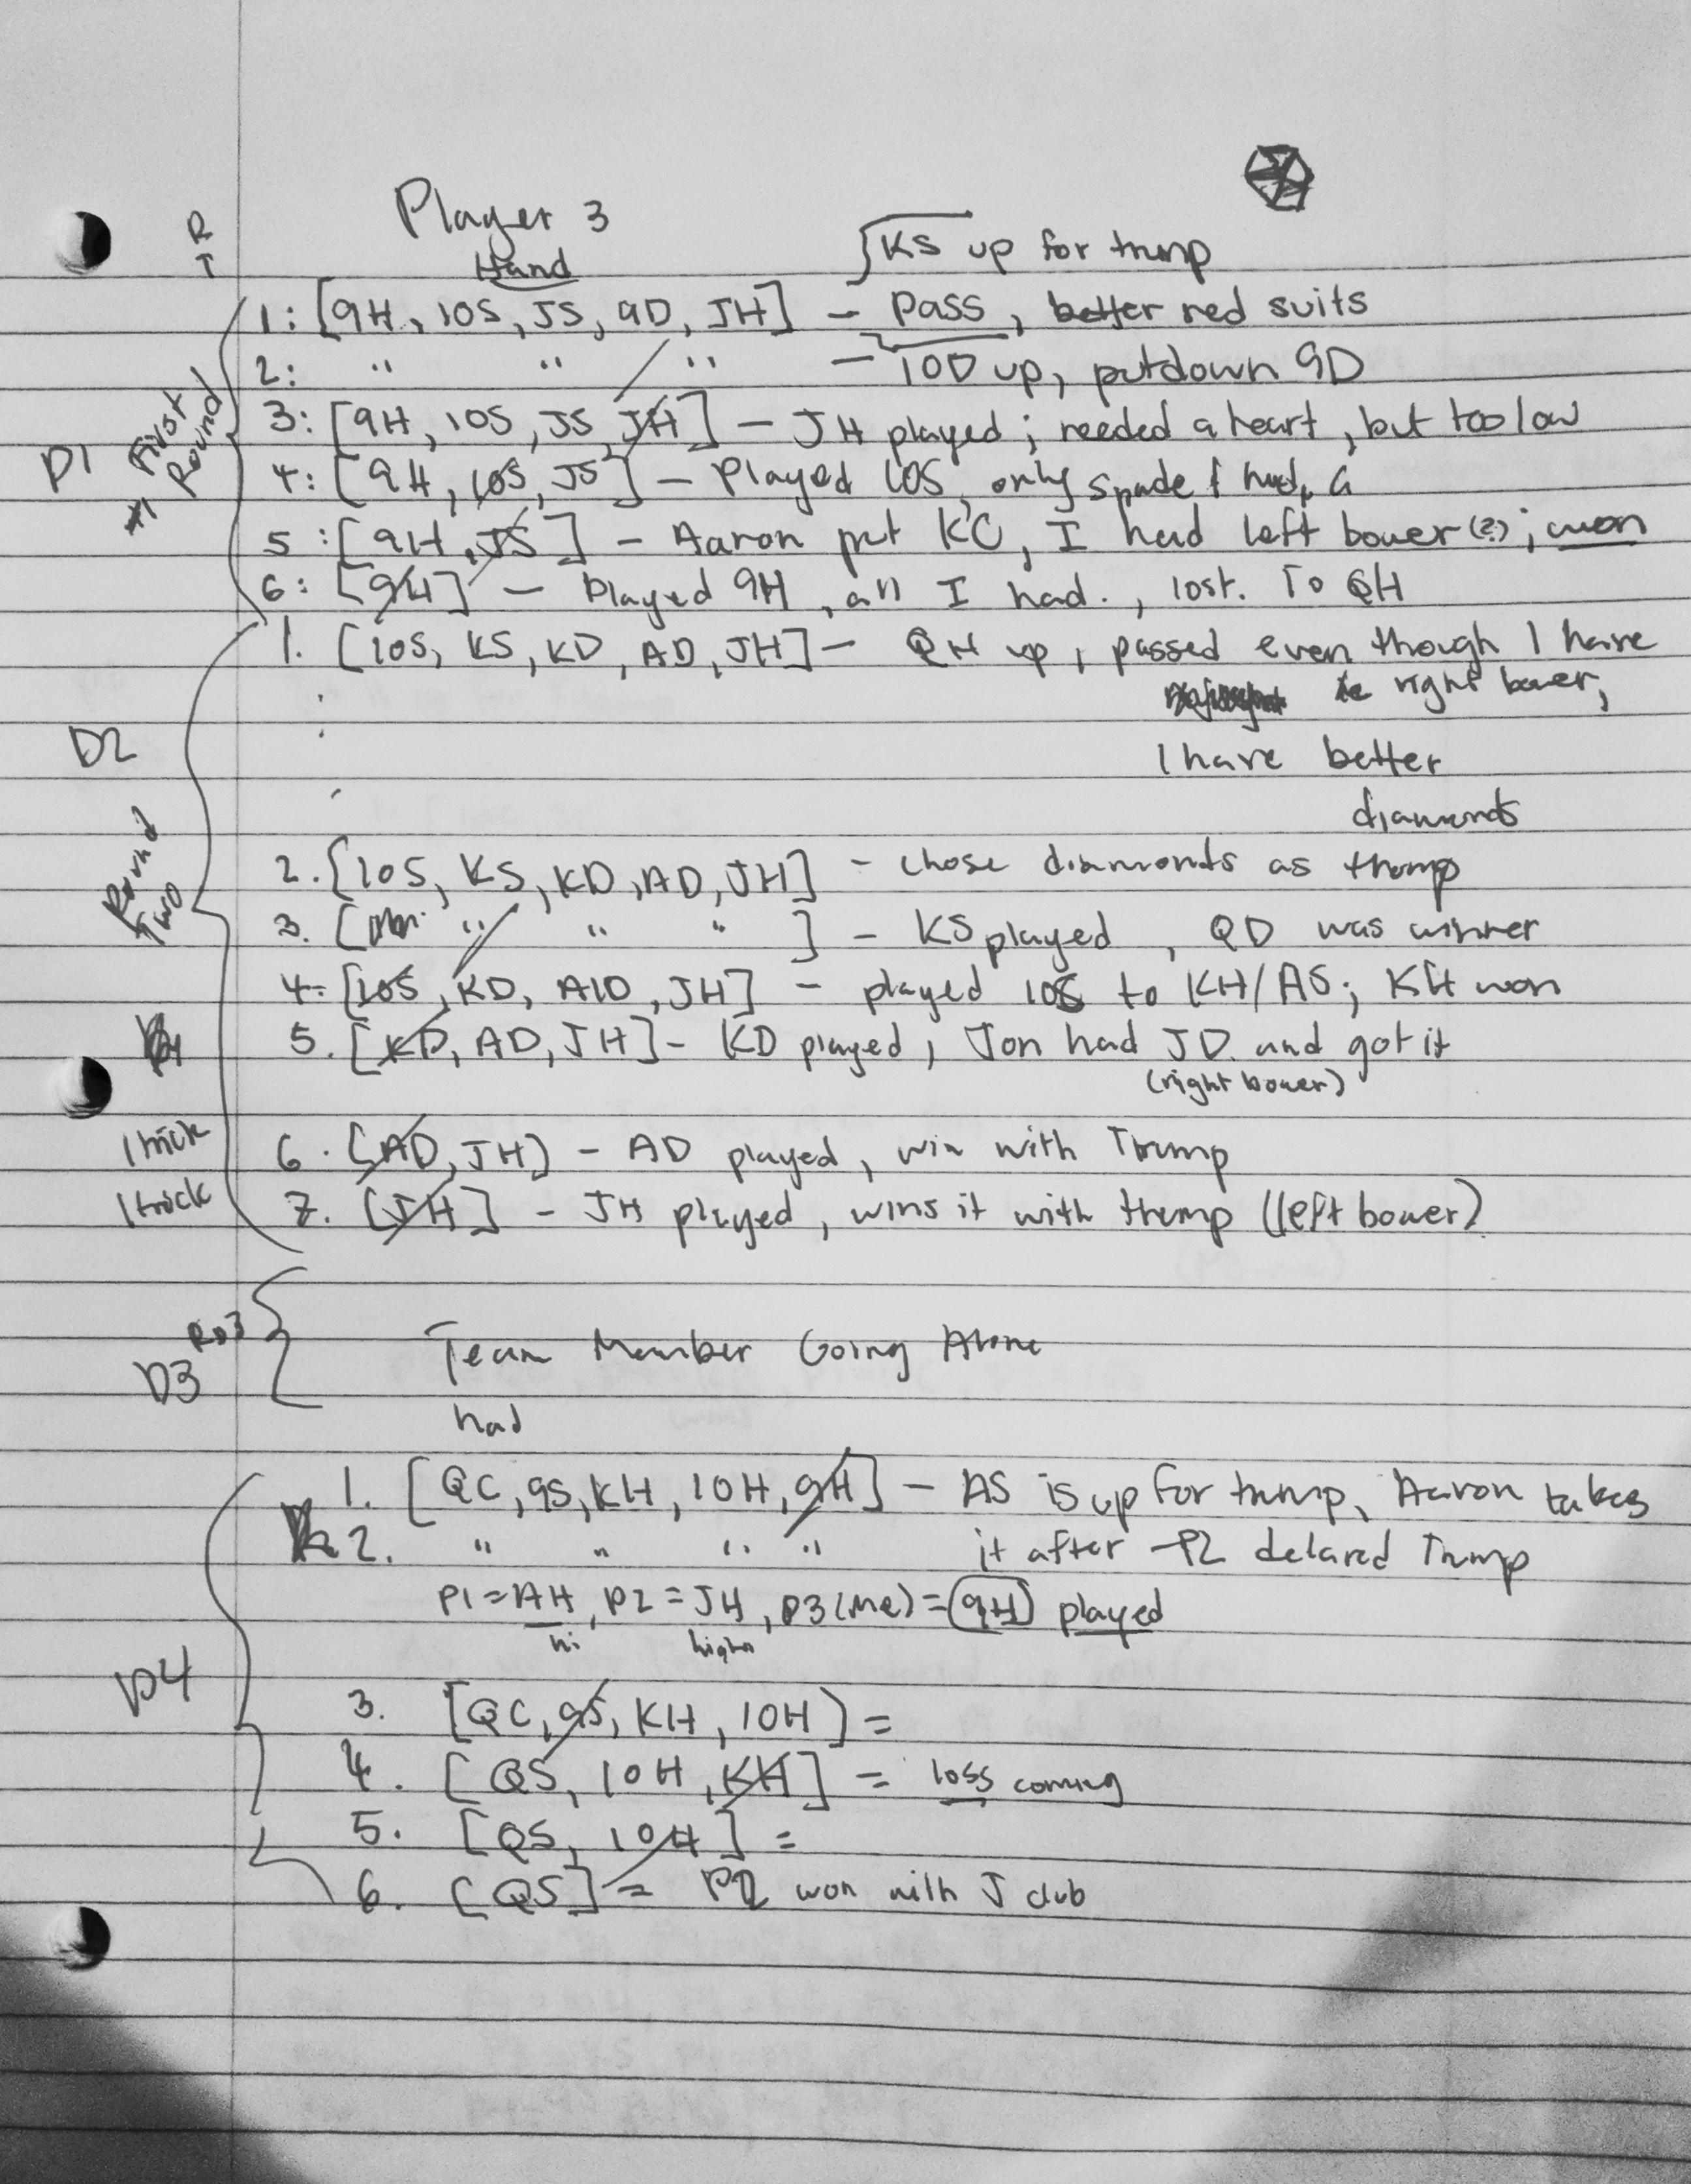 R
T
Player 3
Hand
KS up for trump
1: [9H, 10S, JS, 9D, JH] - Pass, better red suits
2: " " " - 10D up, putdown 9D
D1
First
#1 Round
3: [9H, 10S, JS, JH] - JH played; needed a heart, but too low
4: [9H, 10S, JS] - Played 10S, only spade I had, a
5: [9H, JS] - Aaron put KC, I had left bower (?); won
6: [9H] - Played 9H, all I had., lost. To QH
D2
Round
Two
1. [10S, KS, KD, AD, JH] - QH up, passed even though I have
right bower,
I have better
diamonds
2. [10S, KS, KD, AD, JH] - chose diamonds as trump
3. [ " " " ] - KS played, QD was winner
4. [10S, KD, AD, JH] - played 10S to KH/AS; KH won
5. [KD, AD, JH] - KD played, Jon had JD and got it
(right bower)
1 trick 6. [AD, JH] - AD played, win with Trump
1 trick 7. [JH] - JH played, wins it with trump (left bower)
Rd3
D3
Team Member Going Alone
had
D4
1. [QC, 9S, KH, 10H, 9H] - AS is up for trump, Aaron takes
2. " " " " it after P2 delared Trump
P1=AH, P2=JH, P3(Me)=9H played
hi higher
3. [QC, 9S, KH, 10H) =
4. [QS, 10H, KH] = loss coming
5. [QS, 10H] =
6. [QS] = P2 won with J club